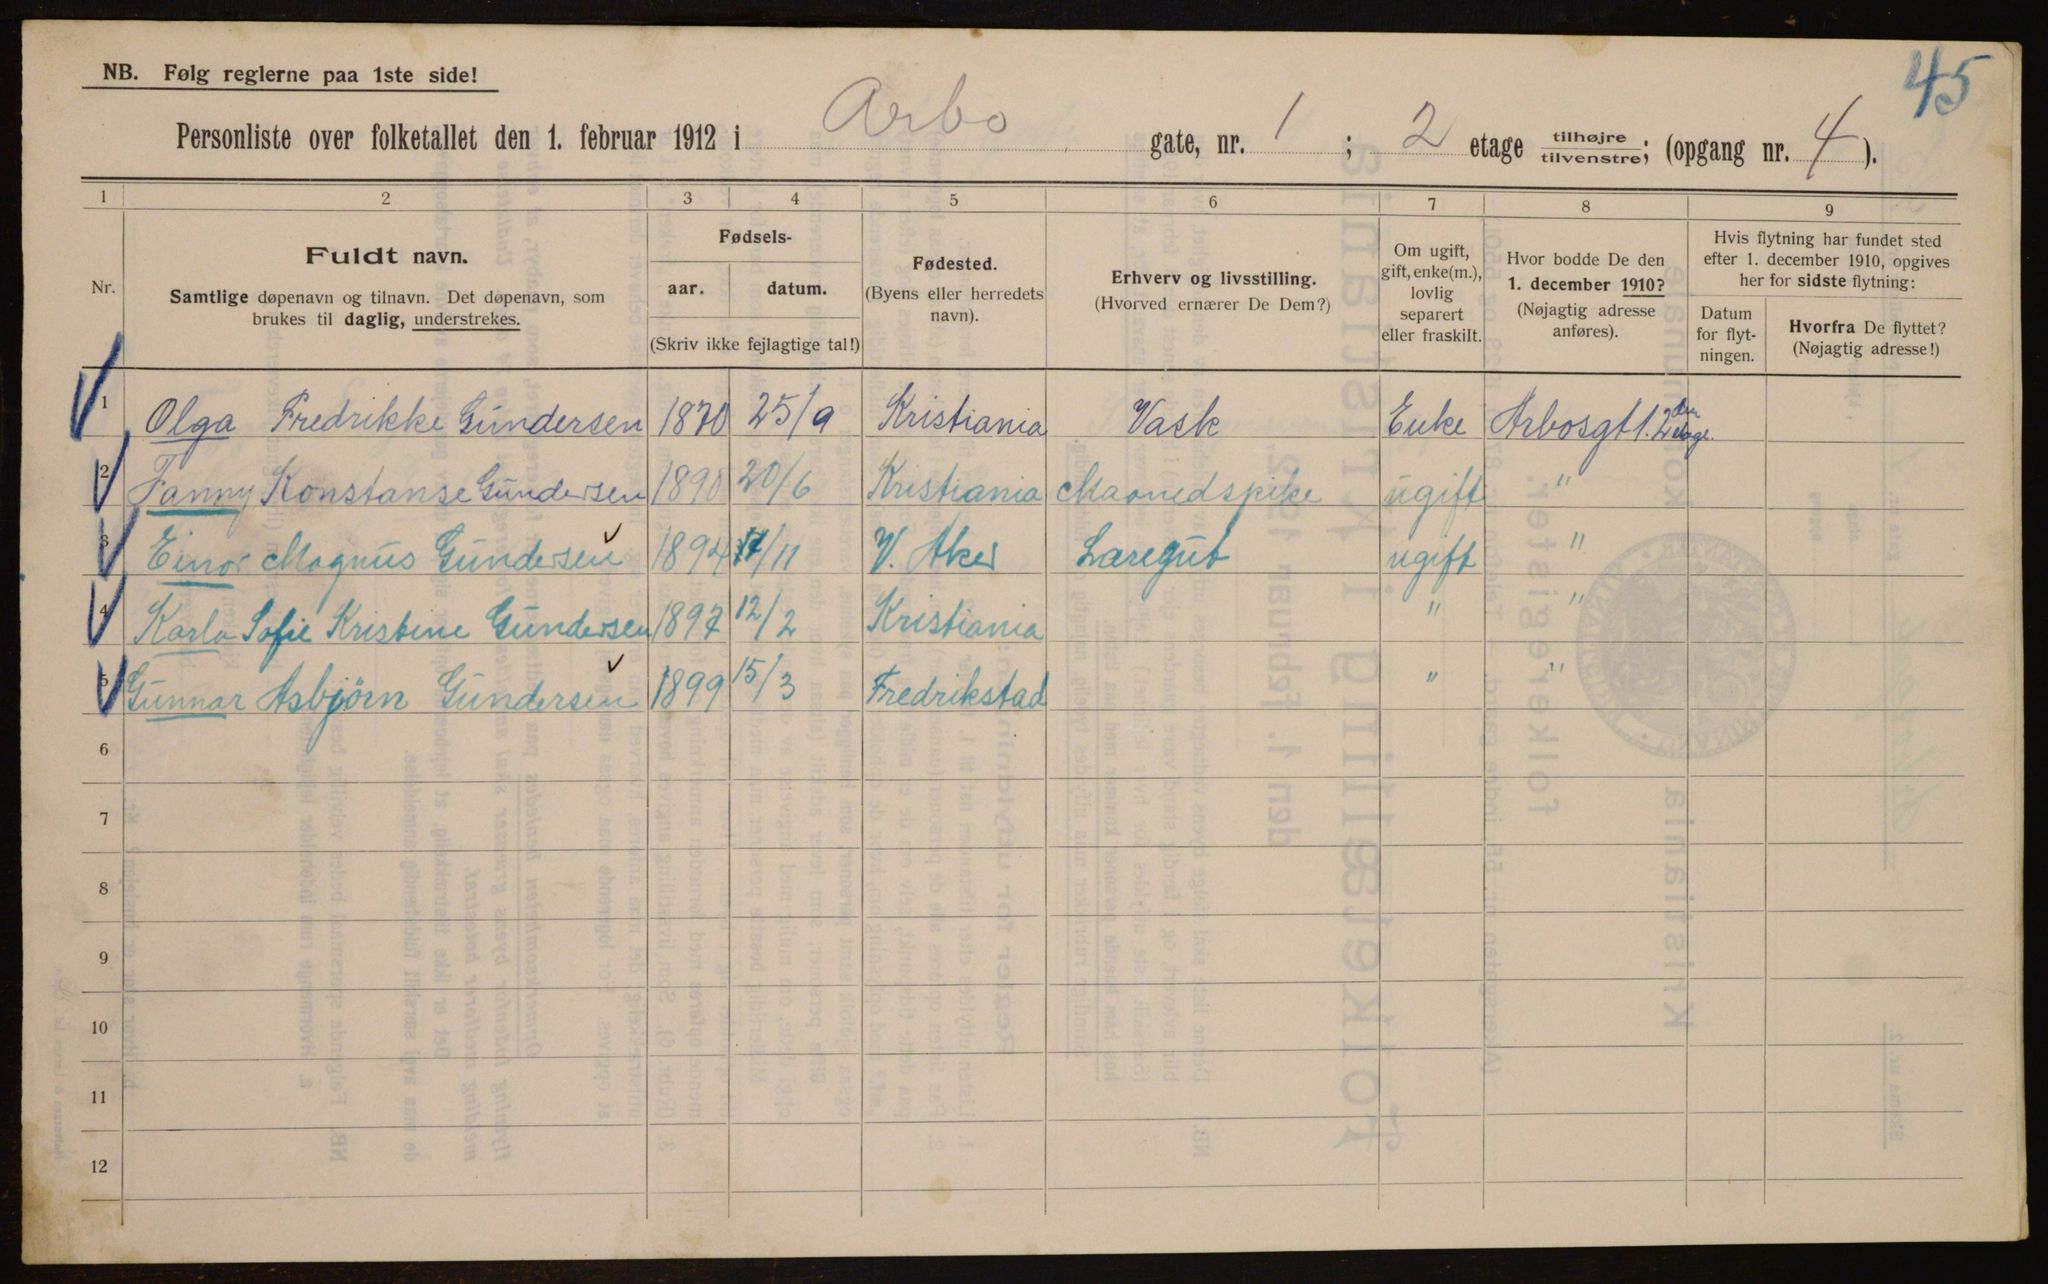 45
NB. Følg reglerne paa 1ste side!
Personliste over folketallet den 1. februar 1912 i Arbo gate, nr. 1 ; 2 etage tilhøjre tilvenstre; (opgang nr. 4 ).
1 2 3 4 5 6 7 8 9
Nr.
Fuldt navn.
Samtlige døpenavn og tilnavn. Det døpenavn, som
brukes til daglig, understrekes.
Fødsels-
aar. datum.
(Skriv ikke fejlagtige tal!)
Fødested.
(Byens eller herredets
navn).
Erhverv og livsstilling.
(Hvorved ernærer De Dem?)
Om ugift,
gift, enke(m.),
lovlig
separert
eller fraskilt.
Hvor bodde De den
1. december 1910?
(Nøjagtig adresse
anføres).
Hvis flytning har fundet sted
efter 1. december 1910, opgives
her for sidste flytning:
Datum
for flyt-
ningen.
Hvorfra De flyttet?
(Nøjagtig adresse!)
1 Olga Fredrikke Gundersen 1870 25/9 Kristiania Vask Enke Arbosgt 1. 2den etage.
2 Fanny Konstanse Gundersen 1890 20/6 Kristiania Maanedspike ugift "
3 Einar Magnus Gundersen 1894 /11 V. Aker Læregut ugift "
4 Karla Sofie Kristine Gundersen 1897 12/2 Kristiania " "
5 Gunnar Asbjørn Gundersen 1899 15/3 Fredrikstad " "
6
7
8
9
10
11
12